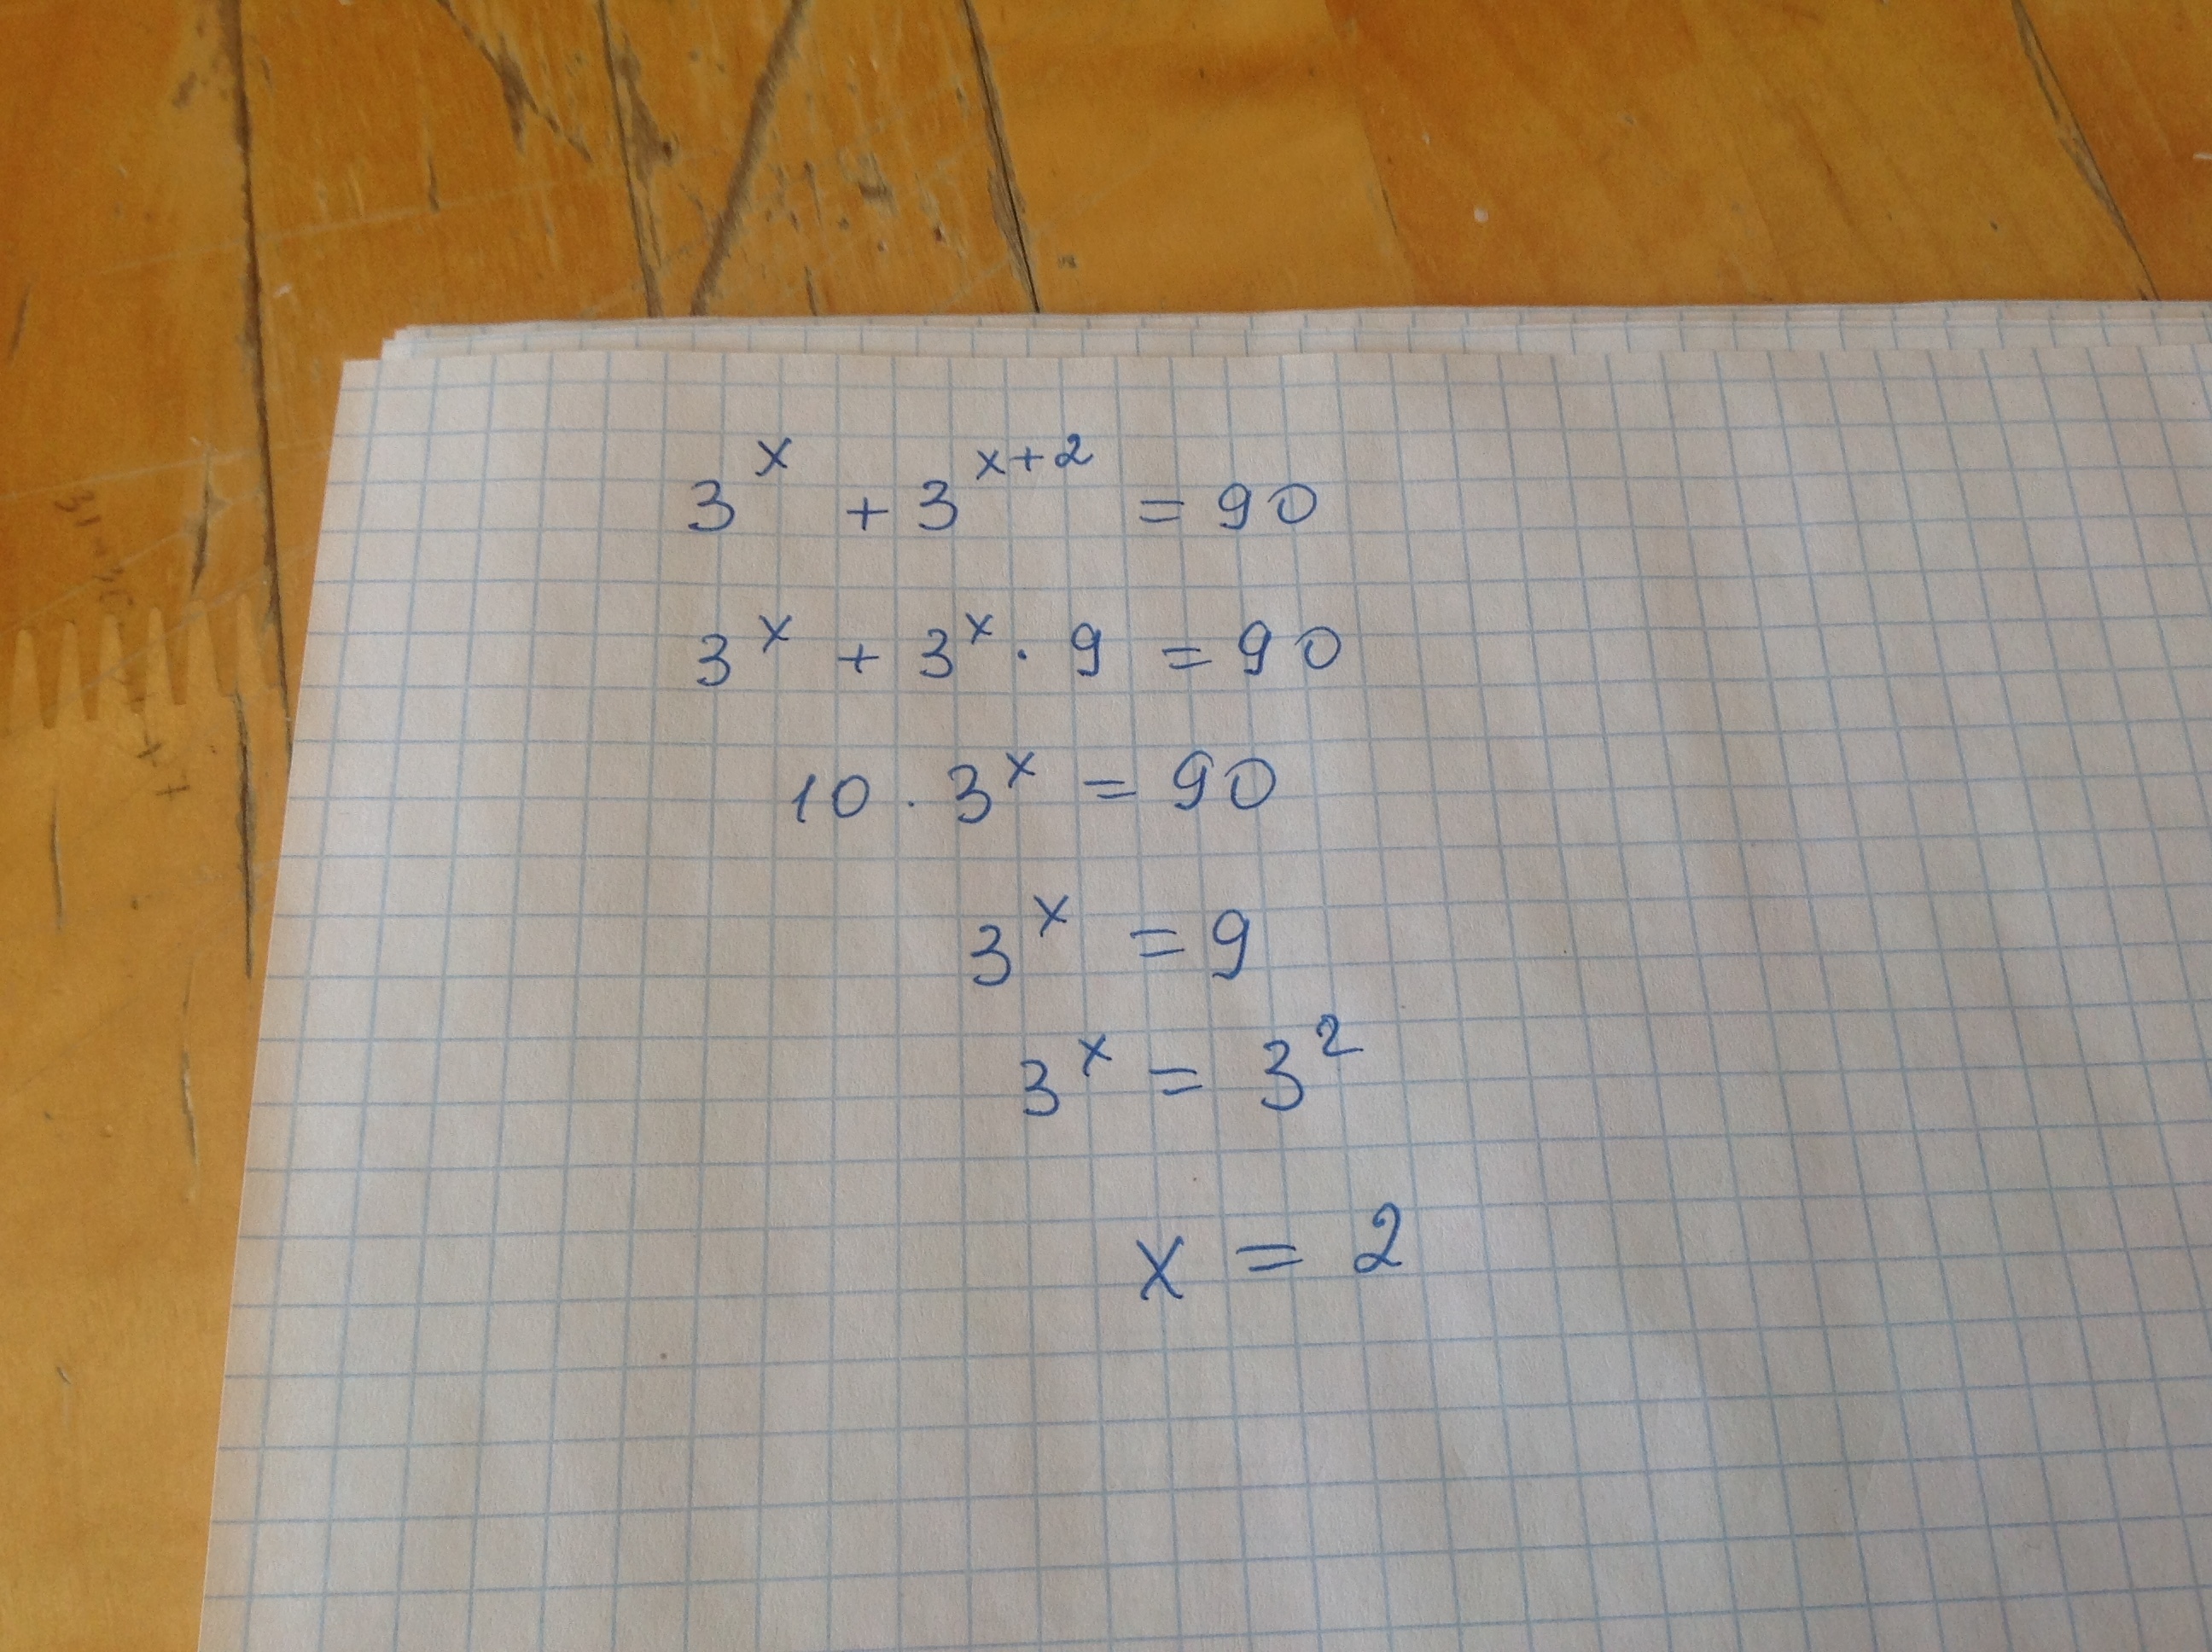 3^x + 3^{x+2} = 90
3^x + 3^x · 9 = 90
10 · 3^x = 90
3^x = 9
3^x = 3^2
x = 2